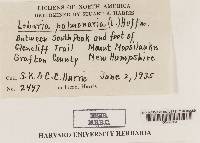 LICHENS OF NORTH AMERICA
DETERMINED BY STUART K. HARRIS
Lobaria pulmonaria (L.) Hoffm.
Between South Peak and foot of
Glencliff Trail Mount Moosilauke
Grafton County New Hampshire
Col. S.K. & C.E. Harris June 2, 1935
No. 2497 in Herb. Harris
HARVARD UNIVERSITY HERBARIA